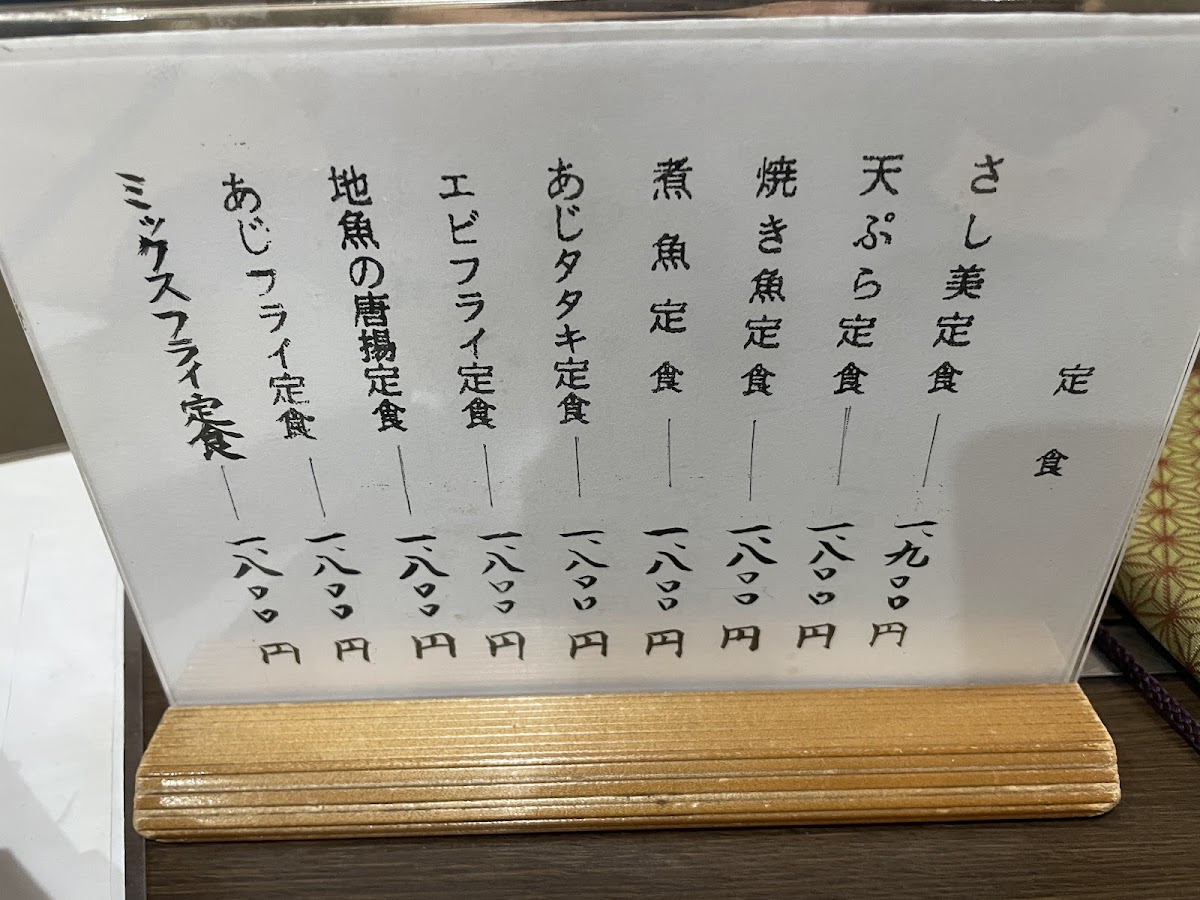 定食
さし美定食 一、九〇〇円
天ぷら定食 一、八〇〇円
焼き魚定食 一、八〇〇円
煮魚定食 一、八〇〇円
あじタタキ定食 一、八〇〇円
エビフライ定食 一、八〇〇円
地魚の唐揚定食 一、八〇〇円
あじフライ定食 一、八〇〇円
ミックスフライ定食 一、八〇〇円